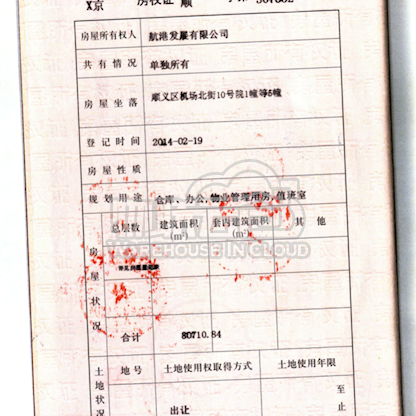 X京 房权证 顺
房屋所有权人 航港发展有限公司
共有情况 单独所有
房屋坐落 顺义区机场北街10号院1幢等5幢
登记时间 2014-02-19
房屋性质
规划用途 仓库、办公,物业管理用房,值班室
房屋状况 总层数 建筑面积(m²) 套内建筑面积(m²) 其他
WAREHOUSE IN CLOUD
合计 80710.84
土地状况 地号 土地使用权取得方式 土地使用年限
出让 至
止